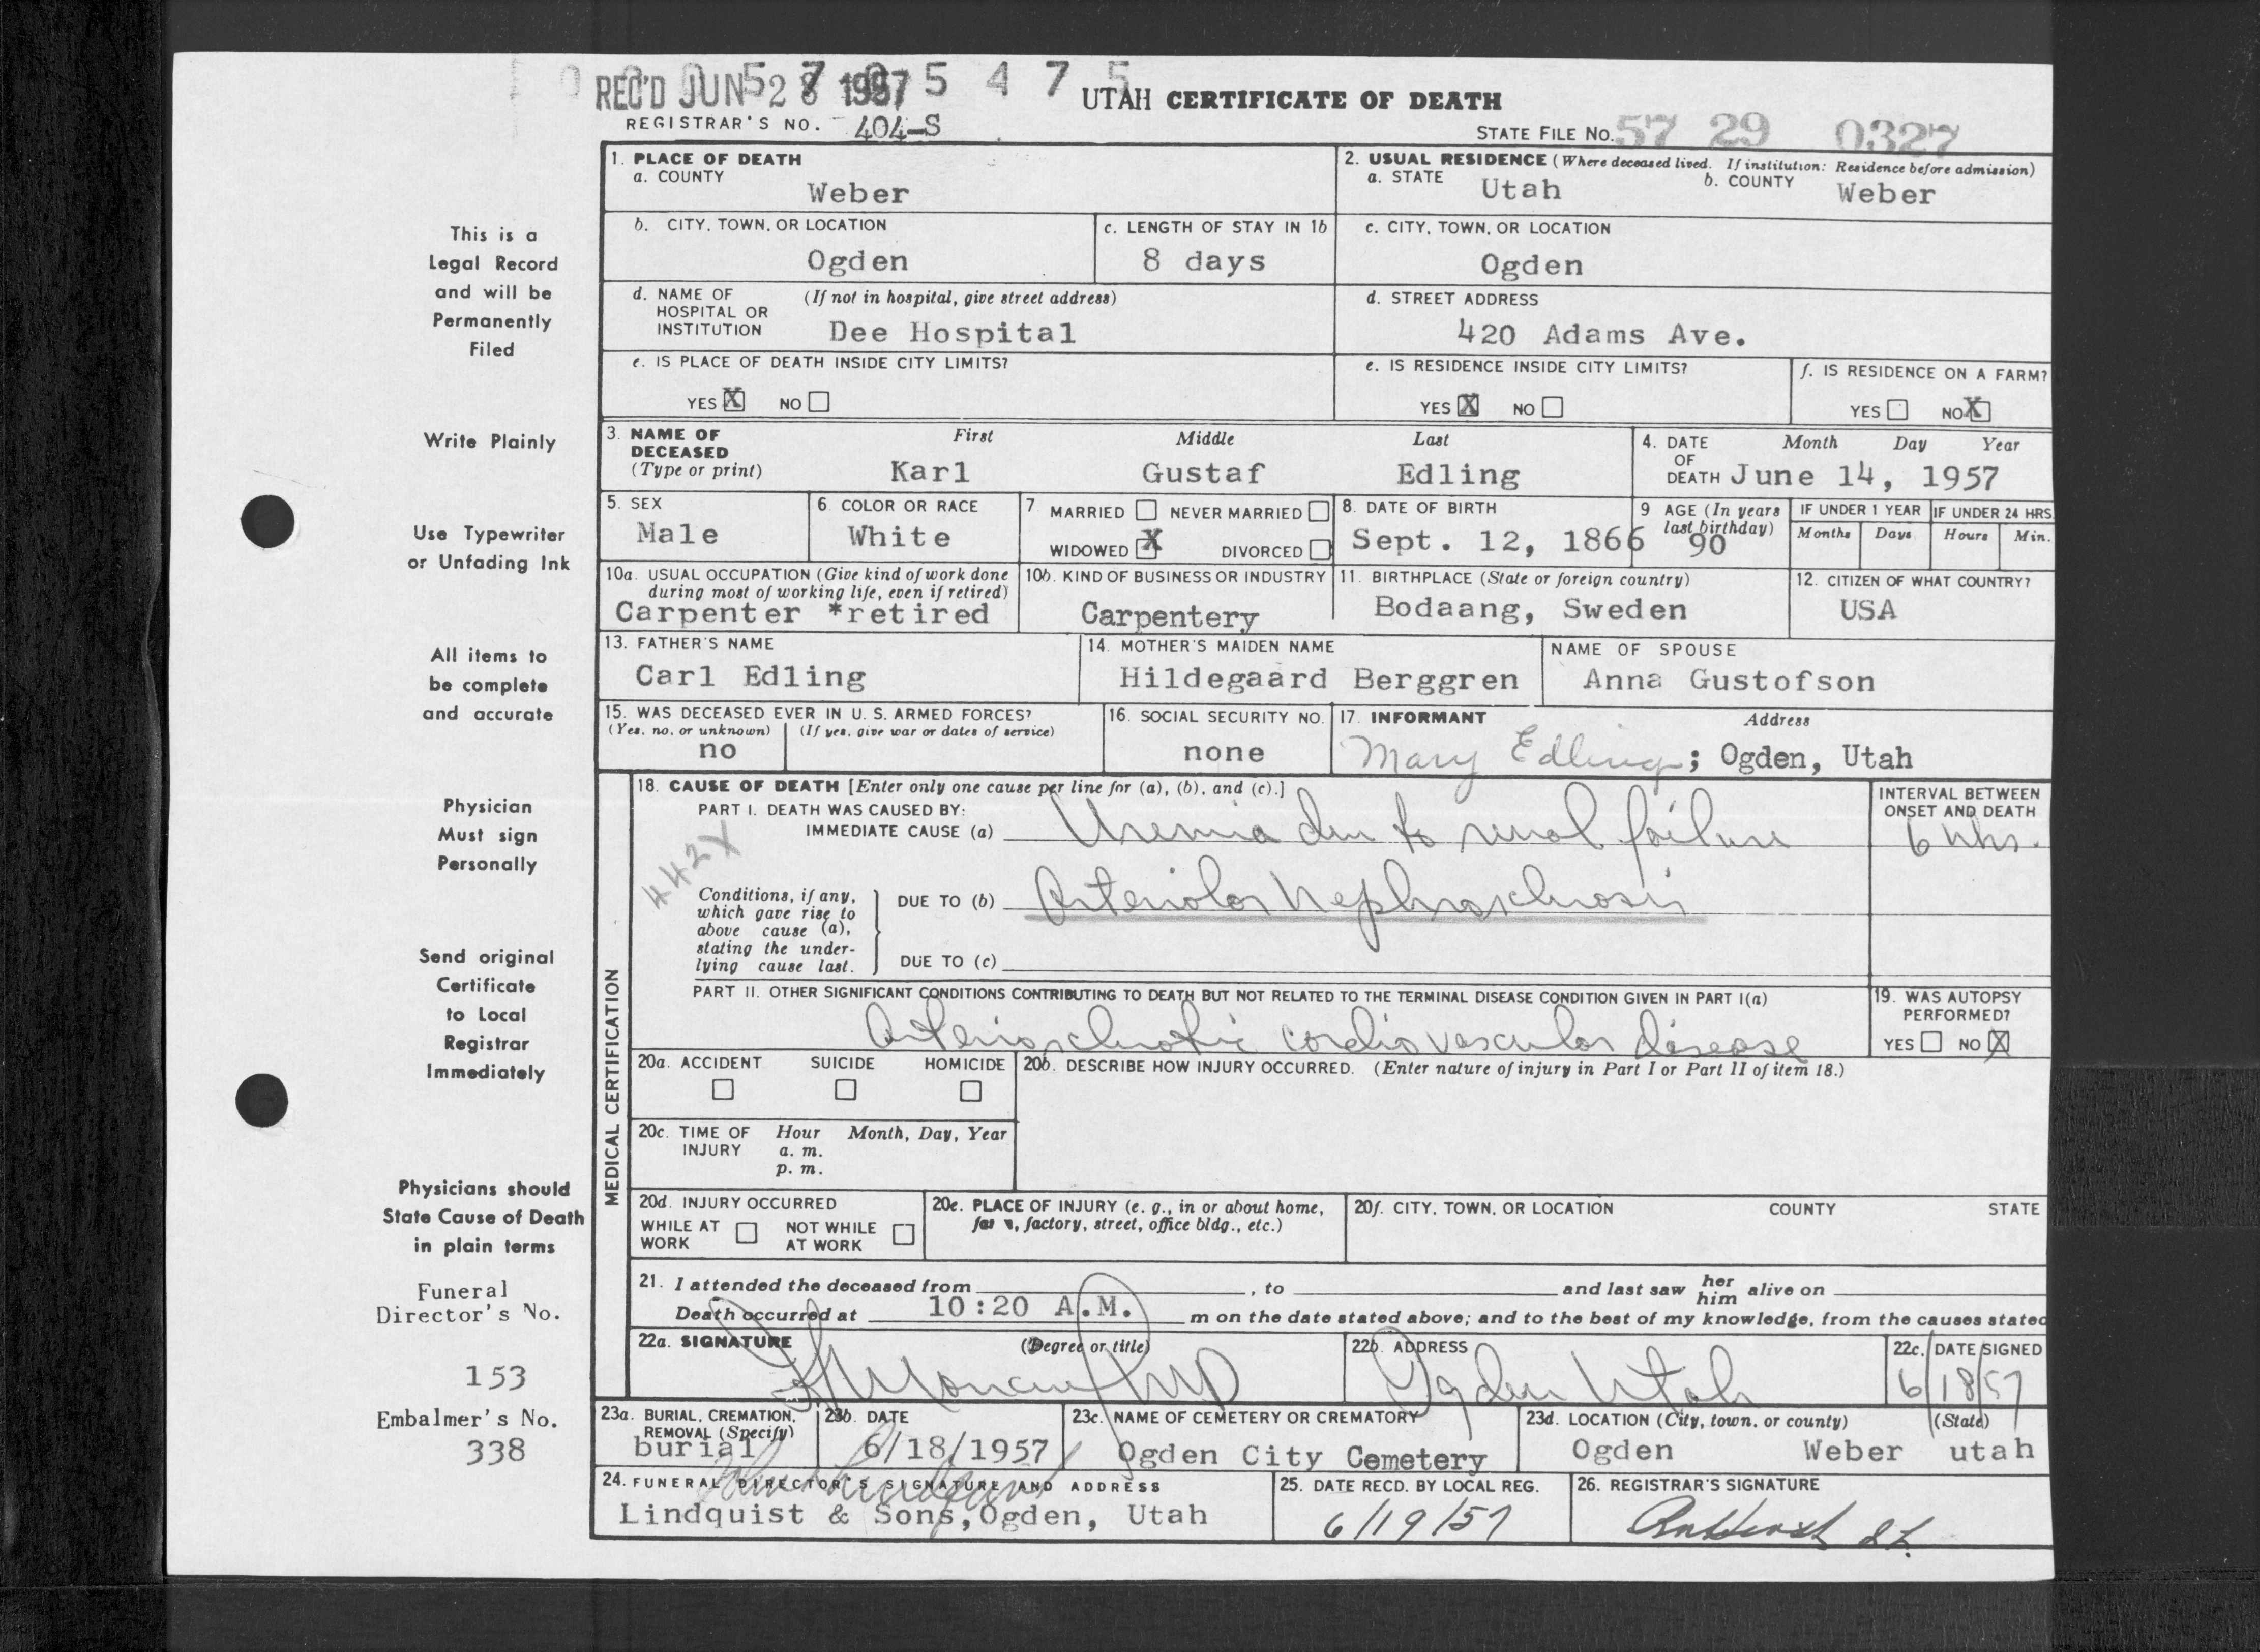 REC'D JUN 28 1957
UTAH CERTIFICATE OF DEATH
REGISTRAR'S NO. 404-S
STATE FILE NO. 57 29 0327
1. PLACE OF DEATH
a. COUNTY
Weber
2. USUAL RESIDENCE (Where deceased lived. If institution: Residence before admission)
a. STATE Utah b. COUNTY Weber
b. CITY, TOWN, OR LOCATION
Ogden
c. LENGTH OF STAY IN 1b
8 days
c. CITY, TOWN, OR LOCATION
Ogden
d. NAME OF HOSPITAL OR INSTITUTION (If not in hospital, give street address)
Dee Hospital
d. STREET ADDRESS
420 Adams Ave.
e. IS PLACE OF DEATH INSIDE CITY LIMITS?
YES X NO
e. IS RESIDENCE INSIDE CITY LIMITS?
YES X NO
f. IS RESIDENCE ON A FARM?
YES NO X
3. NAME OF DECEASED (Type or print)
First Middle Last
Karl Gustaf Edling
4. DATE OF DEATH Month Day Year
June 14, 1957
5. SEX
Male
6. COLOR OR RACE
White
7 MARRIED NEVER MARRIED
WIDOWED X DIVORCED
8. DATE OF BIRTH
Sept. 12, 1866
9 AGE (In years last birthday)
90
IF UNDER 1 YEAR
Months Days
IF UNDER 24 HRS.
Hours Min.
10a. USUAL OCCUPATION (Give kind of work done during most of working life, even if retired)
Carpenter *retired
10b. KIND OF BUSINESS OR INDUSTRY
Carpentery
11. BIRTHPLACE (State or foreign country)
Bodaang, Sweden
12. CITIZEN OF WHAT COUNTRY?
USA
13. FATHER'S NAME
Carl Edling
14. MOTHER'S MAIDEN NAME
Hildegaard Berggren
NAME OF SPOUSE
Anna Gustofson
15. WAS DECEASED EVER IN U. S. ARMED FORCES?
(Yes, no, or unknown) (If yes, give war or dates of service)
no
16. SOCIAL SECURITY NO.
none
17. INFORMANT Address
Mary Edling; Ogden, Utah
MEDICAL CERTIFICATION
18. CAUSE OF DEATH [Enter only one cause per line for (a), (b), and (c).]
PART I. DEATH WAS CAUSED BY:
IMMEDIATE CAUSE (a) Uremia due to renal failure
INTERVAL BETWEEN ONSET AND DEATH
6 whs.
442X
Conditions, if any, which gave rise to above cause (a), stating the underlying cause last.
DUE TO (b) Arteriolar Nephrosclerosis
DUE TO (c)
PART II. OTHER SIGNIFICANT CONDITIONS CONTRIBUTING TO DEATH BUT NOT RELATED TO THE TERMINAL DISEASE CONDITION GIVEN IN PART I(a)
Arteriosclerotic cardiovascular disease
19. WAS AUTOPSY PERFORMED?
YES NO X
20a. ACCIDENT SUICIDE HOMICIDE
20b. DESCRIBE HOW INJURY OCCURRED. (Enter nature of injury in Part I or Part II of item 18.)
20c. TIME OF INJURY Hour Month, Day, Year
a. m.
p. m.
20d. INJURY OCCURRED
WHILE AT WORK NOT WHILE AT WORK
20e. PLACE OF INJURY (e. g., in or about home, factory, street, office bldg., etc.)
20f. CITY, TOWN, OR LOCATION COUNTY STATE
21. I attended the deceased from , to and last saw her him alive on
Death occurred at 10:20 A.M. m on the date stated above; and to the best of my knowledge, from the causes stated
22a. SIGNATURE (Degree or title)
MD
22b. ADDRESS
Ogden Utah
22c. DATE SIGNED
6/18/57
23a. BURIAL, CREMATION, REMOVAL (Specify)
burial
23b. DATE
6/18/1957
23c. NAME OF CEMETERY OR CREMATORY
Ogden City Cemetery
23d. LOCATION (City, town, or county) (State)
Ogden Weber utah
24. FUNERAL DIRECTOR'S SIGNATURE AND ADDRESS
Lindquist & Sons, Ogden, Utah
25. DATE RECD. BY LOCAL REG.
6/19/57
26. REGISTRAR'S SIGNATURE
This is a
Legal Record
and will be
Permanently
Filed
Write Plainly
Use Typewriter
or Unfading Ink
All items to
be complete
and accurate
Physician
Must sign
Personally
Send original
Certificate
to Local
Registrar
Immediately
Physicians should
State Cause of Death
in plain terms
Funeral
Director's No.
153
Embalmer's No.
338